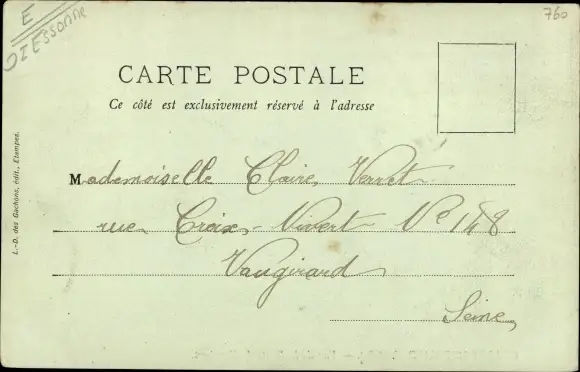 E
91 ESSONNE
760
CARTE POSTALE
Ce côté est exclusivement réservé à l'adresse
Mademoiselle Claire Verret
rue Croix-Nivert Nº 148
Vaugirard
Seine
L.-D. des Gachons, édit., Etampes.